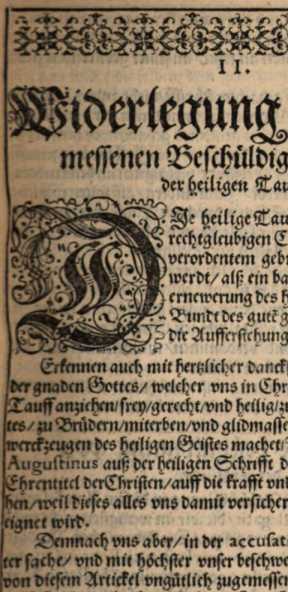 II.
Widerlegung
messenen Beschüldig
der heiligen Tau
DJe heilige Tau
rechtgleubigen C
verordentem geb
werdt/ alß ein ba
ernewerung des h
Bundt des gutē g
die Aufferstehung
Erkennen auch mit hertzlicher danck
der gnaden Gottes/ welcher vns in Chr
Tauff anziehen/frey/gerecht/vnd heilig/zu
tes/ zu Brüdern/miterben/vnd glidmasse
werckzeugen des heiligen Geistes machet/
Augustinus auß der heiligen Schrifft d
Ehrentitel der Christen/auff die krafft vnd
hen/weil dieses alles vns damit versicher
eignet wird.
Demnach vns aber/ in der accusat
ter sache/ vnd mit höchster vnser beschwe
von diesem Artickel vngütlich zugemessen